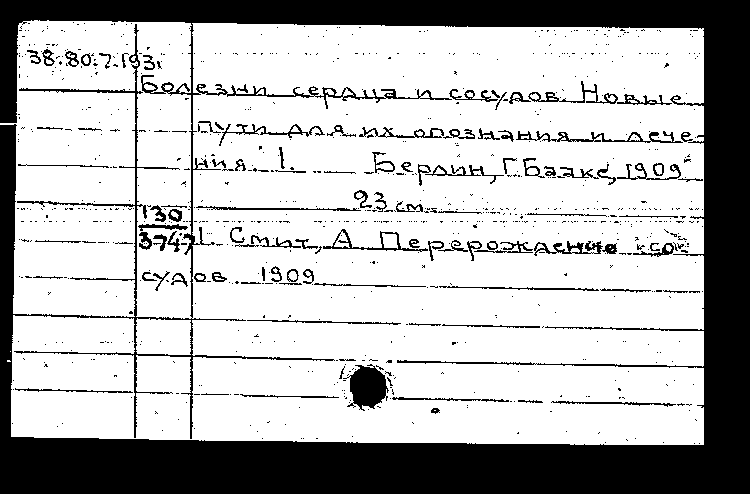 38.80.7.193г
Болезни сердца и сосудов. Новые
пути для их опознания и лече-
ния. 1. Берлин, Г. Бааке, 1909
23 см.
130
3747 1. Смит, А. Перерождение сосу
судов. 1909